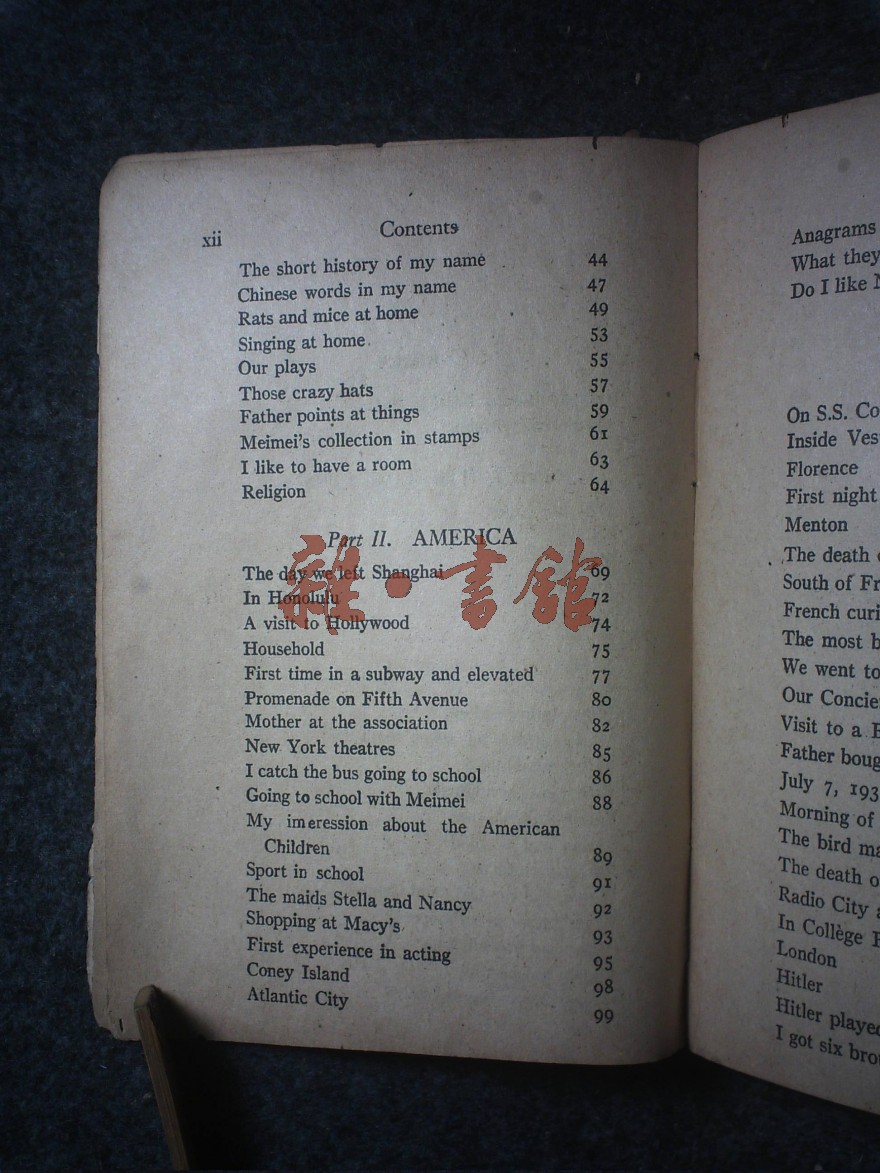 xii
Contents
The short history of my name 44
Chinese words in my name 47
Rats and mice at home 49
Singing at home 53
Our plays 55
Those crazy hats 57
Father points at things 59
Meimei's collection in stamps 61
I like to have a room 63
Religion 64
Part II. AMERICA
The day we left Shanghai 69
In Honolulu 72
A visit to Hollywood 74
Household 75
First time in a subway and elevated 77
Promenade on Fifth Avenue 80
Mother at the association 82
New York theatres 85
I catch the bus going to school 86
Going to school with Meimei 88
My imeression about the American
Children 89
Sport in school 91
The maids Stella and Nancy 92
Shopping at Macy's 93
First experience in acting 95
Coney Island 98
Atlantic City 99
雜·書館
Anagrams
What they
Do I like
On S.S.
Inside
Florence
First night
Menton
The death
South of
French
The most
We went to
Our
Visit to a
Father
July 7,
Morning of
The bird
The death
Radio City
In Collège
London
Hitler
Hitler
I got six